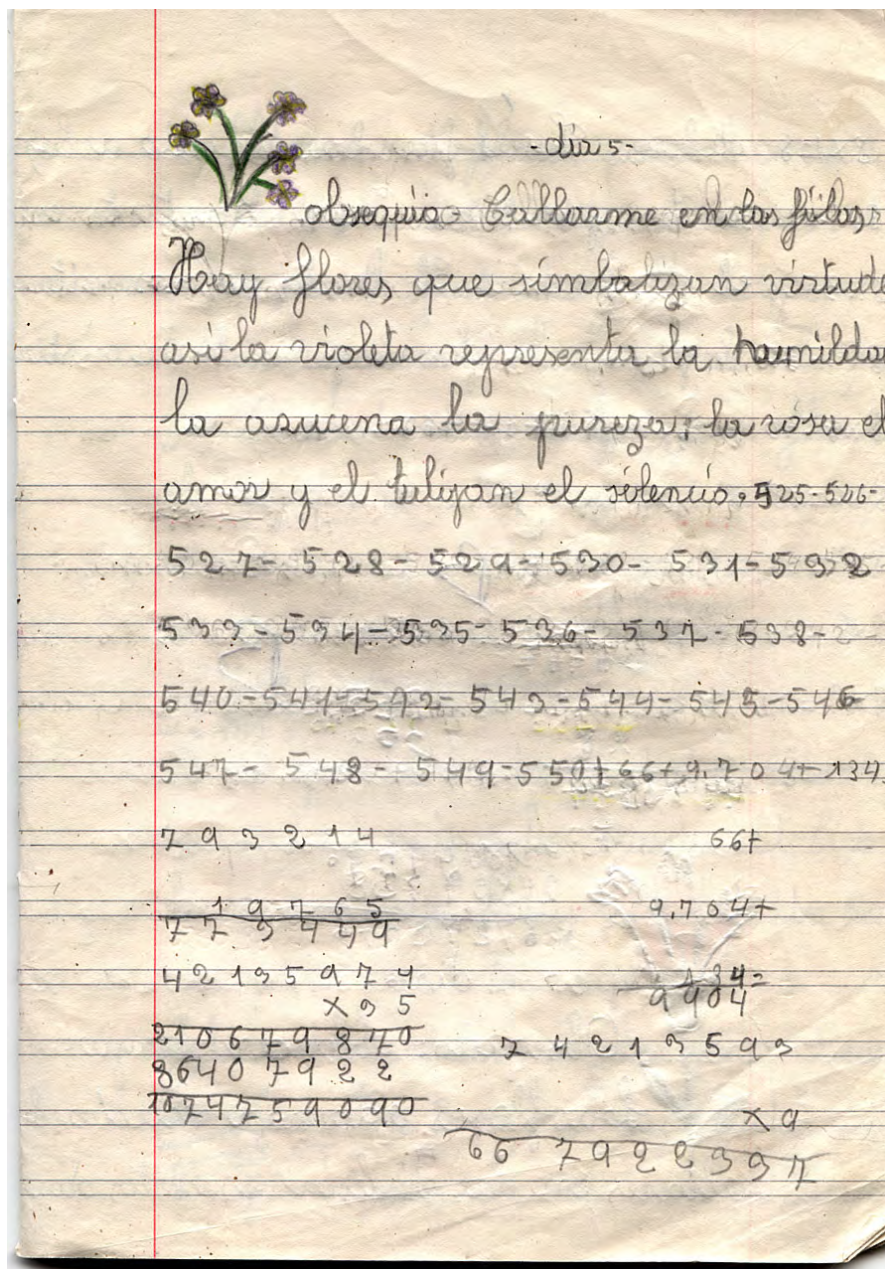 -día 5-
obsequio Callarme en las filas
Hay flores que simbolizan virtude
así la violeta representa la humilda
la azucena la pureza; la rosa el
amor y el tulipan el silencio. 525-526-
527- 528- 529- 530- 531- 532
533- 534- 535- 536- 537- 538-
540- 541- 542- 543- 544- 545- 546
547- 548- 549- 550+66+9.704+134
793214 66+
19765 9.704+
773449
42135974 134=
×35 9904
210679870 742135593
86407922
1074759090 ×9
6679223 37